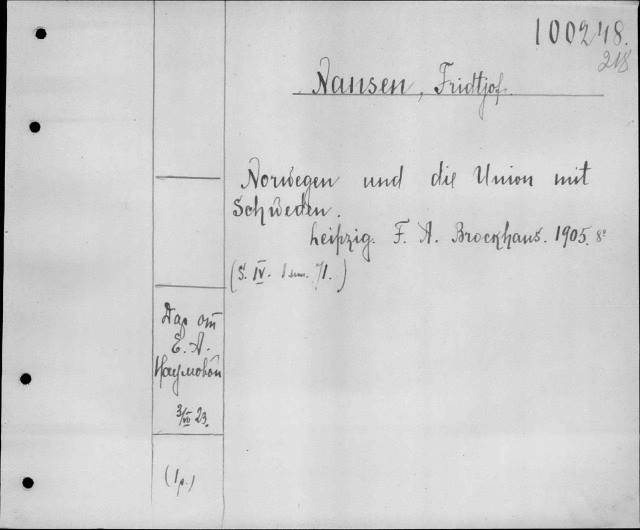 100248.
218
Nansen, Fridtjof.
Norwegen und die Union mit
Schweden.
Leipzig. F. A. Brockhaus. 1905. 8°
(S. IV. 1 unn. 71.)
Дар от
Е. А.
Наумовой
3/VII 23.
(1р.)